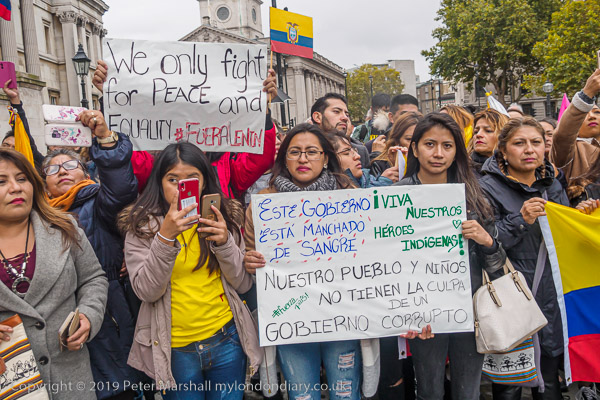 We only fight
for PEACE and
EQUALITY #FUERALENIN
ESTE GOBIERNO
ESTÁ MANCHADO
DE SANGRE
¡VIVA
NUESTROS
HÉROES
INDIGENAS!
NUESTRO PUEBLO Y NIÑOS
NO TIENEN LA CULPA
DE UN
GOBIERNO CORRUPTO
Copyright © 2019 Peter Marshall mylondondiary.co.uk